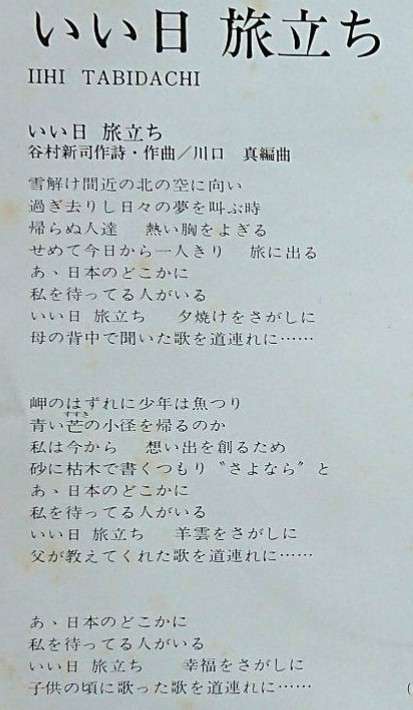 いい日 旅立ち
IIHI TABIDACHI
いい日 旅立ち
谷村新司作詩・作曲／川口 真編曲
雪解け間近の北の空に向い
過ぎ去りし日々の夢を叫ぶ時
帰らぬ人達 熱い胸をよぎる
せめて今日から一人きり 旅に出る
あゝ日本のどこかに
私を待ってる人がいる
いい日 旅立ち 夕焼けをさがしに
母の背中で聞いた歌を道連れに……
岬のはずれに少年は魚つり
青い芒の小径を帰るのか
すすき
私は今から 想い出を創るため
砂に枯木で書くつもり〝さよなら〟と
あゝ日本のどこかに
私を待ってる人がいる
いい日 旅立ち 羊雲をさがしに
父が教えてくれた歌を道連れに……
あゝ日本のどこかに
私を待ってる人がいる
いい日 旅立ち 幸福をさがしに
子供の頃に歌った歌を道連れに……
(